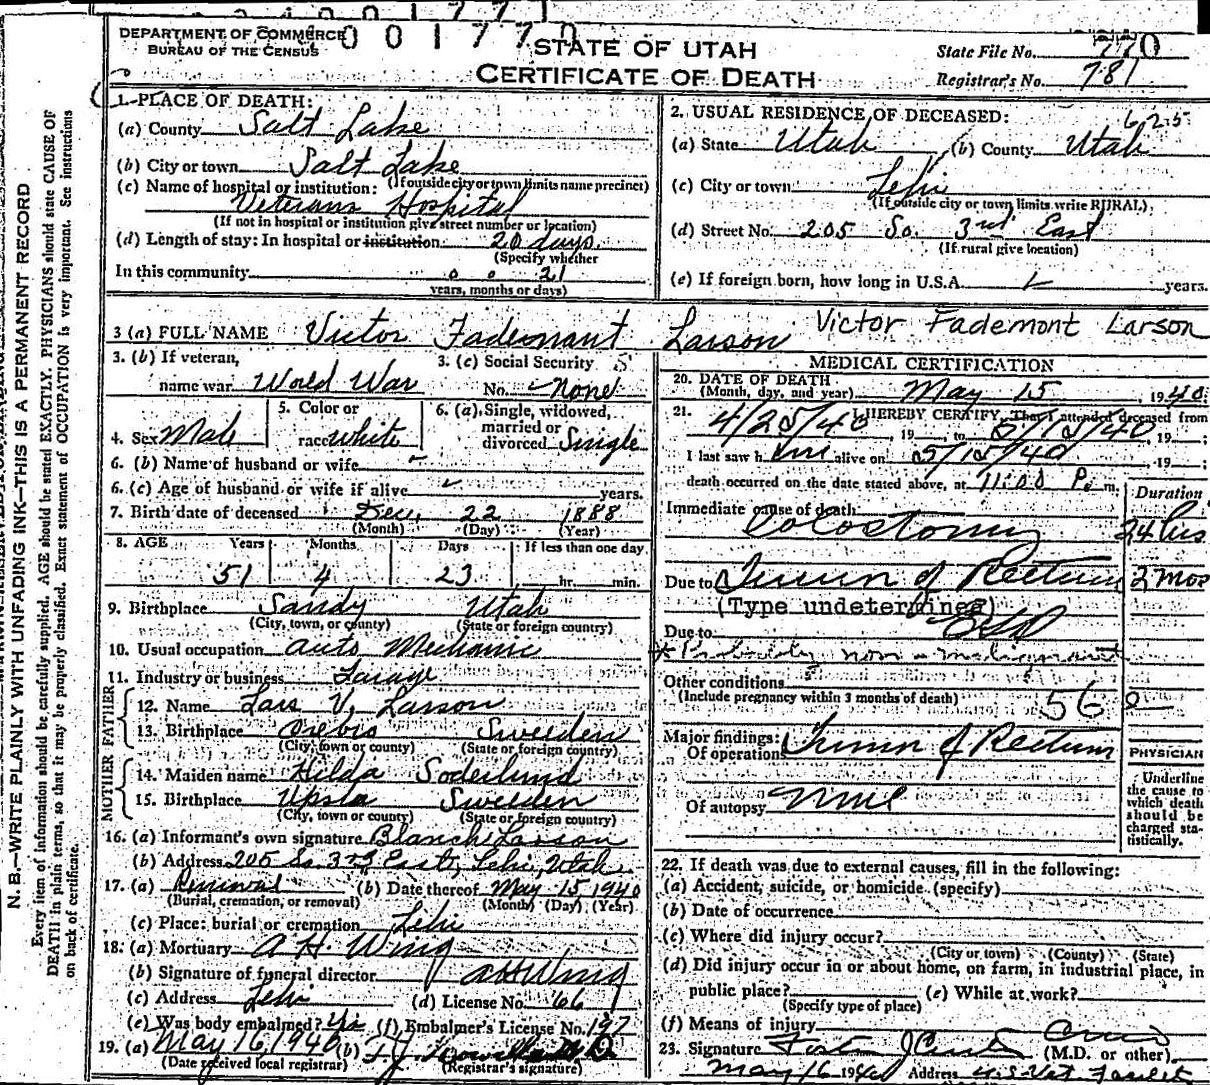 DEPARTMENT OF COMMERCE
BUREAU OF THE CENSUS
001770
STATE OF UTAH
CERTIFICATE OF DEATH
State File No. 770
Registrar's No. 781
N. B.—WRITE PLAINLY WITH UNFADING INK—THIS IS A PERMANENT RECORD
Every item of information should be carefully supplied. AGE should be stated EXACTLY. PHYSICIANS should state CAUSE OF
DEATH in plain terms, so that it may be properly classified. Exact statement of OCCUPATION is very important. See instructions
on back of certificate.
1. PLACE OF DEATH:
(a) County Salt Lake
(b) City or town Salt Lake
(c) Name of hospital or institution: (If outside city or town limits name precinct)
Veterans Hospital
(If not in hospital or institution give street number or location)
(d) Length of stay: In hospital or institution 20 days
(Specify whether
In this community 0 0 21
years, months or days)
2. USUAL RESIDENCE OF DECEASED: 625
(a) State Utah (b) County Utah
(c) City or town Lehi
(If outside city or town limits write RURAL)
(d) Street No. 205 So. 3rd East
(If rural give location)
(e) If foreign born, how long in U.S.A. years.
3 (a) FULL NAME Victor Fademont Larson Victor Fademont Larson
3. (b) If veteran,
name war World War
3. (c) Social Security
No. None
4. Sex Male
5. Color or
race white
6. (a) Single, widowed,
married or
divorced Single
6. (b) Name of husband or wife -
6. (c) Age of husband or wife if alive years.
7. Birth date of deceased Dec. 22 1888
(Month) (Day) (Year)
8. AGE Years Months Days If less than one day
51 4 23 hr. min.
9. Birthplace Sandy Utah
(City, town, or county) (State or foreign country)
10. Usual occupation Auto Mechanic
11. Industry or business Garage
FATHER
12. Name Lars V. Larson
13. Birthplace Orebro Sweeden
(City, town or county) (State or foreign country)
MOTHER
14. Maiden name Hilda Soderlund
15. Birthplace Upsla Sweeden
(City, town or county) (State or foreign country)
16. (a) Informant's own signature Blanch Larson
(b) Address 205 So 3rd East, Lehi, Utah
17. (a) Removal (b) Date thereof May 15 1940
(Burial, cremation, or removal) (Month) (Day) (Year)
(c) Place: burial or cremation Lehi
18. (a) Mortuary A. H. Wing
(b) Signature of funeral director A H Wing
(c) Address Lehi (d) License No. 66
(e) Was body embalmed? Yes (f) Embalmer's License No. 197
19. (a) May 16, 1940 (b)
(Date received local registrar) (Registrar's signature)
MEDICAL CERTIFICATION
20. DATE OF DEATH
(Month, day, and year) May 15, 1940.
21. I HEREBY CERTIFY, That I attended deceased from
4/25/40, 19 , to 5/15/40, 19 ;
I last saw him alive on 5/15/40, 19 ;
death occurred on the date stated above, at 11:00 P. m.
Duration
Immediate cause of death
Colostomy 24 hrs
Due to Tumor of Rectum 2 mos
(Type undetermined)
Due to
* Probably non-malignant
Other conditions
(Include pregnancy within 3 months of death) 56
Major findings:
Of operations Tumor of Rectum
Of autopsy None
PHYSICIAN
Underline
the cause to
which death
should be
charged sta-
tistically.
22. If death was due to external causes, fill in the following:
(a) Accident, suicide, or homicide (specify)
(b) Date of occurrence
(c) Where did injury occur?
(City or town) (County) (State)
(d) Did injury occur in or about home, on farm, in industrial place, in
public place? (e) While at work?
(Specify type of place)
(f) Means of injury
23. Signature Foster J Curtis (M.D. or other)
May 16 1940 Address U.S. Vet